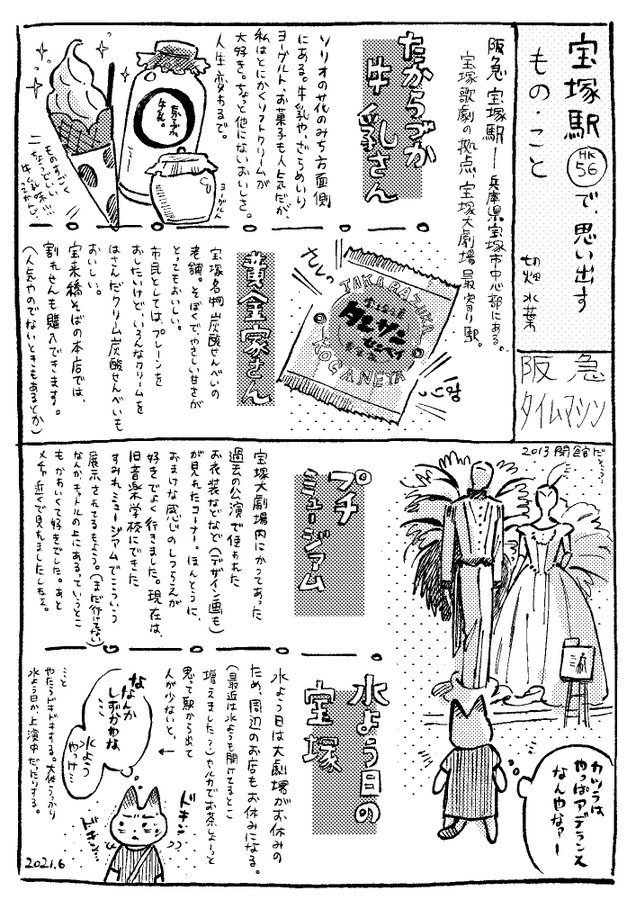 宝塚駅
HK
56
で、思い出す
もの・こと
切畑水葉
阪急
タイムマシン
阪急 宝塚駅ー兵庫県宝塚市中心部にある。
宝塚歌劇の拠点、宝塚大劇場最寄り駅。
たからづか
牛乳さん
ソリオの花のみち方面側
にある。牛乳や、ざらめいり
ヨーグルト、お菓子も人気だが、
私はとにかくソフトクリームが
大好き。ちょっと他にないおいしさ。
人生変わるで。
たからづか
牛乳
ヨーグルト
ものすっごく
ちょうどいい
牛乳味…!!
コーンも。
サクッ
TAKARAZUKA
タンサン
せんべい
KOGANEYA
黄金家さん
宝塚名物 炭酸せんべいの
老舗。そぼくでやさしい甘さが
とってもおいしい。
市民としては、プレーンを
おしたいけど、いろんなクリームを
はさんだクリーム炭酸せんべいも
おいしい。
宝来橋そばの本店では、
割れせんも購入できます。
(人気やのでないときもあるとか)
2013閉館だそう…
プチ
ミュージアム
宝塚大劇場内にかつてあった
過去の公演で使われた
お衣装などなど(デザイン画も)
が見れたコーナー。ほんとうに、
おまけな感じのしつらえが
好きでよく行きました。現在は、
旧音楽学校にできた
すみれミュージアムでこういう
展示されてるもよう。(まだ行けてない)
なんかモールの上にあるっていうとこ
もかわいくて好きでした。あと
メチャ近くで見れましたしねェ。
カツラは
やっぱアデランス
なんやなァー
水よう日の
宝塚
水よう日は大劇場がお休みの
ため、周辺のお店もお休みになる。
(最近は水ようも開けてるとこ
増えました?)シャルカでお茶しょーっと
思って駅から出て
人が少ないと、
↓
な
なんか
しずかやな
…
水よう
やっけ…
ドキン…
ドキン…
…と
やたらドキドキする。大体うっかり
水よう日か、上演中だったりする。
2021.6